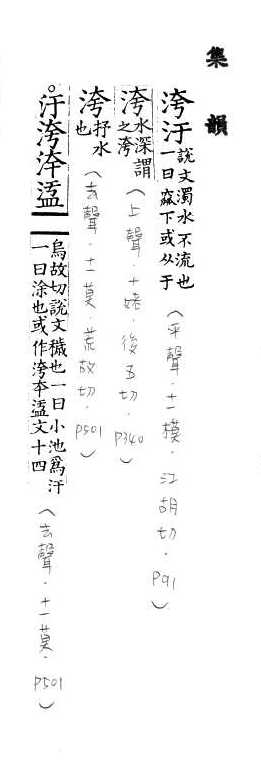 集韻
洿汙說文濁水不流也一曰窊下或从于（平聲．十一模．汪胡切．P91）
洿水深謂之洿（上聲．十姥．後五切．P340）
洿抒水也（去聲．十一莫．荒故切．P501）
。汙洿洿盓烏故切說文薉也一曰小池爲汙一曰涂也或作洿夲盓文十四（去聲．十一莫．P501）